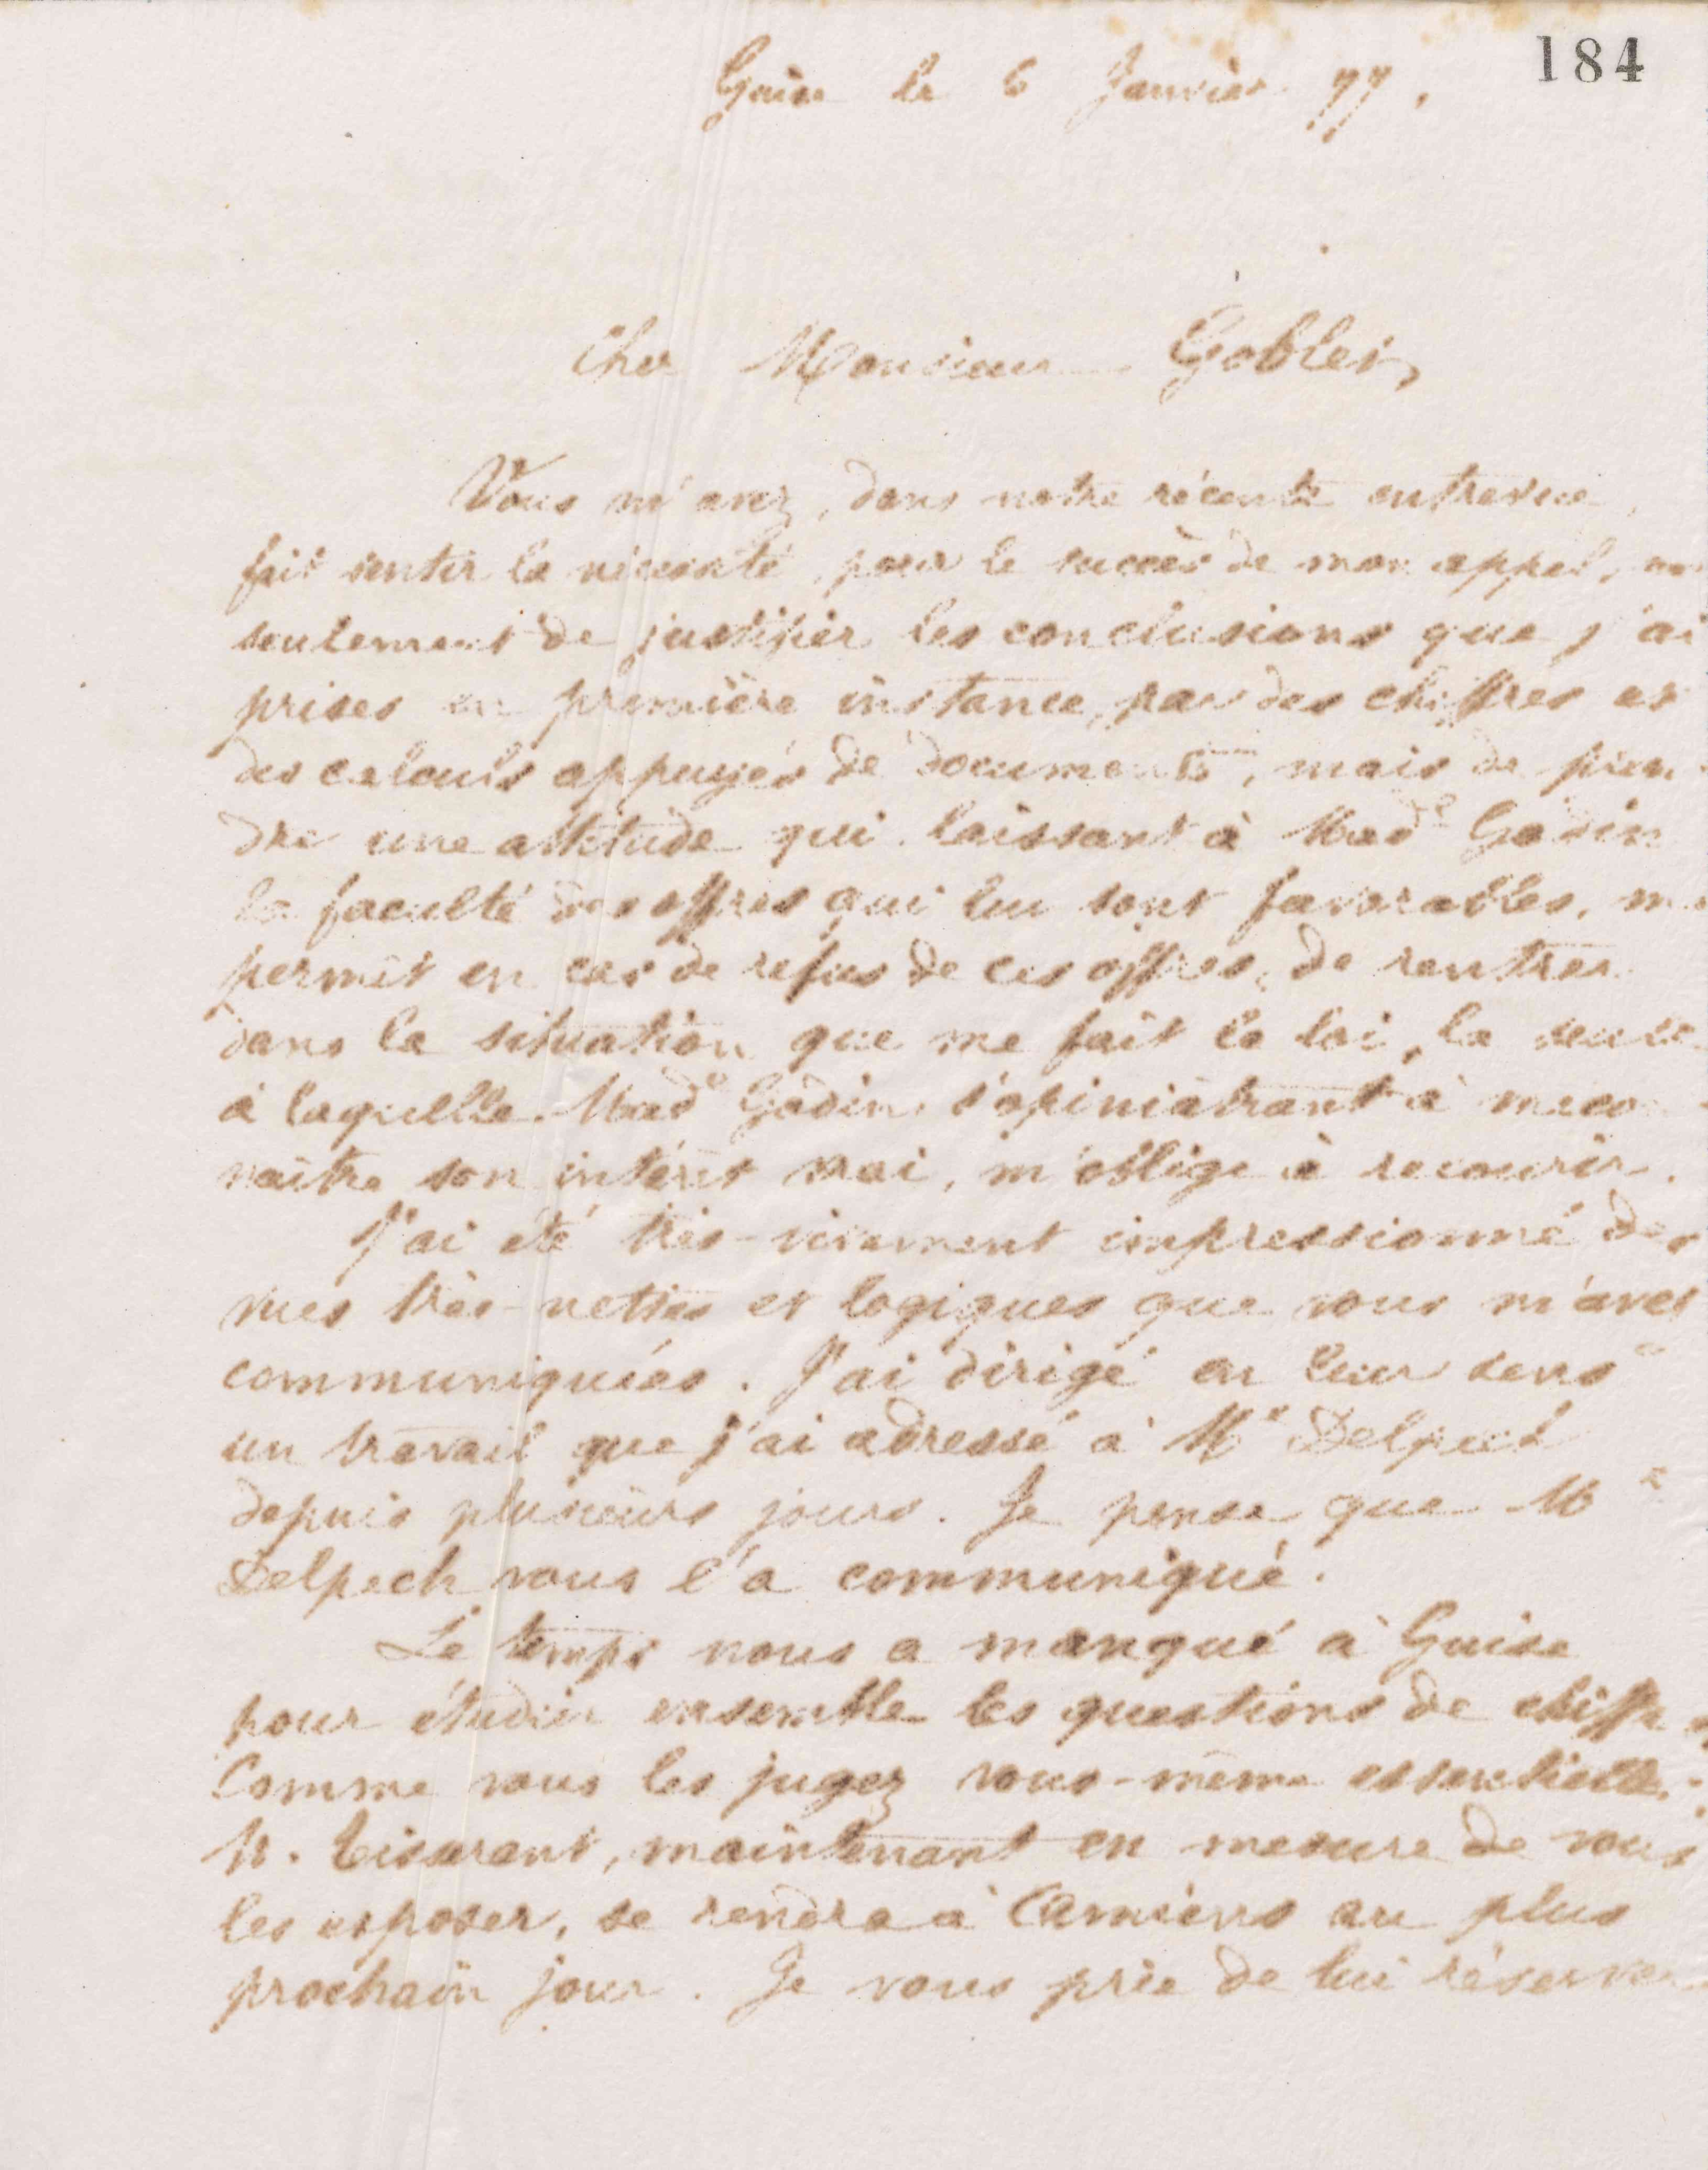 184
Guise le 6 Janvier 77.
Cher Monsieur Goblet,
Vous m'avez, dans notre récente entrevue,
fait sentir la nécessité, pour le succès de mon appel, non
seulement de justifier les conclusions que j'ai
prises en première instance, par des chiffres et
des calculs appuyés de documents, mais de pren-
dre une attitude qui laissant à Mad^e Godin
la faculté des offres qui lui sont favorables, me
permit en cas de refus de ces offres, de rentrer
dans la situation que me fait la loi, la seule
à laquelle Mad^e Godin, s'opiniâtrant à mécon-
naître son intérêt vrai, m'oblige à recourir.
J'ai été très-vivement impressionné des
vues très-nettes et logiques que vous m'avez
communiquées. J'ai dirigé en leur sens
un travail que j'ai adressé à M^r Delpech
depuis plusieurs jours. Je pense que M^r
Delpech vous l'a communiqué.
Le temps nous a manqué à Guise
pour étudier ensemble les questions de chiffres
Comme vous les jugez vous-même essentielles,
M. Tisserant, maintenant en mesure de vous
les exposer, se rendra à Amiens au plus
prochain jour. Je vous prie de lui réserver